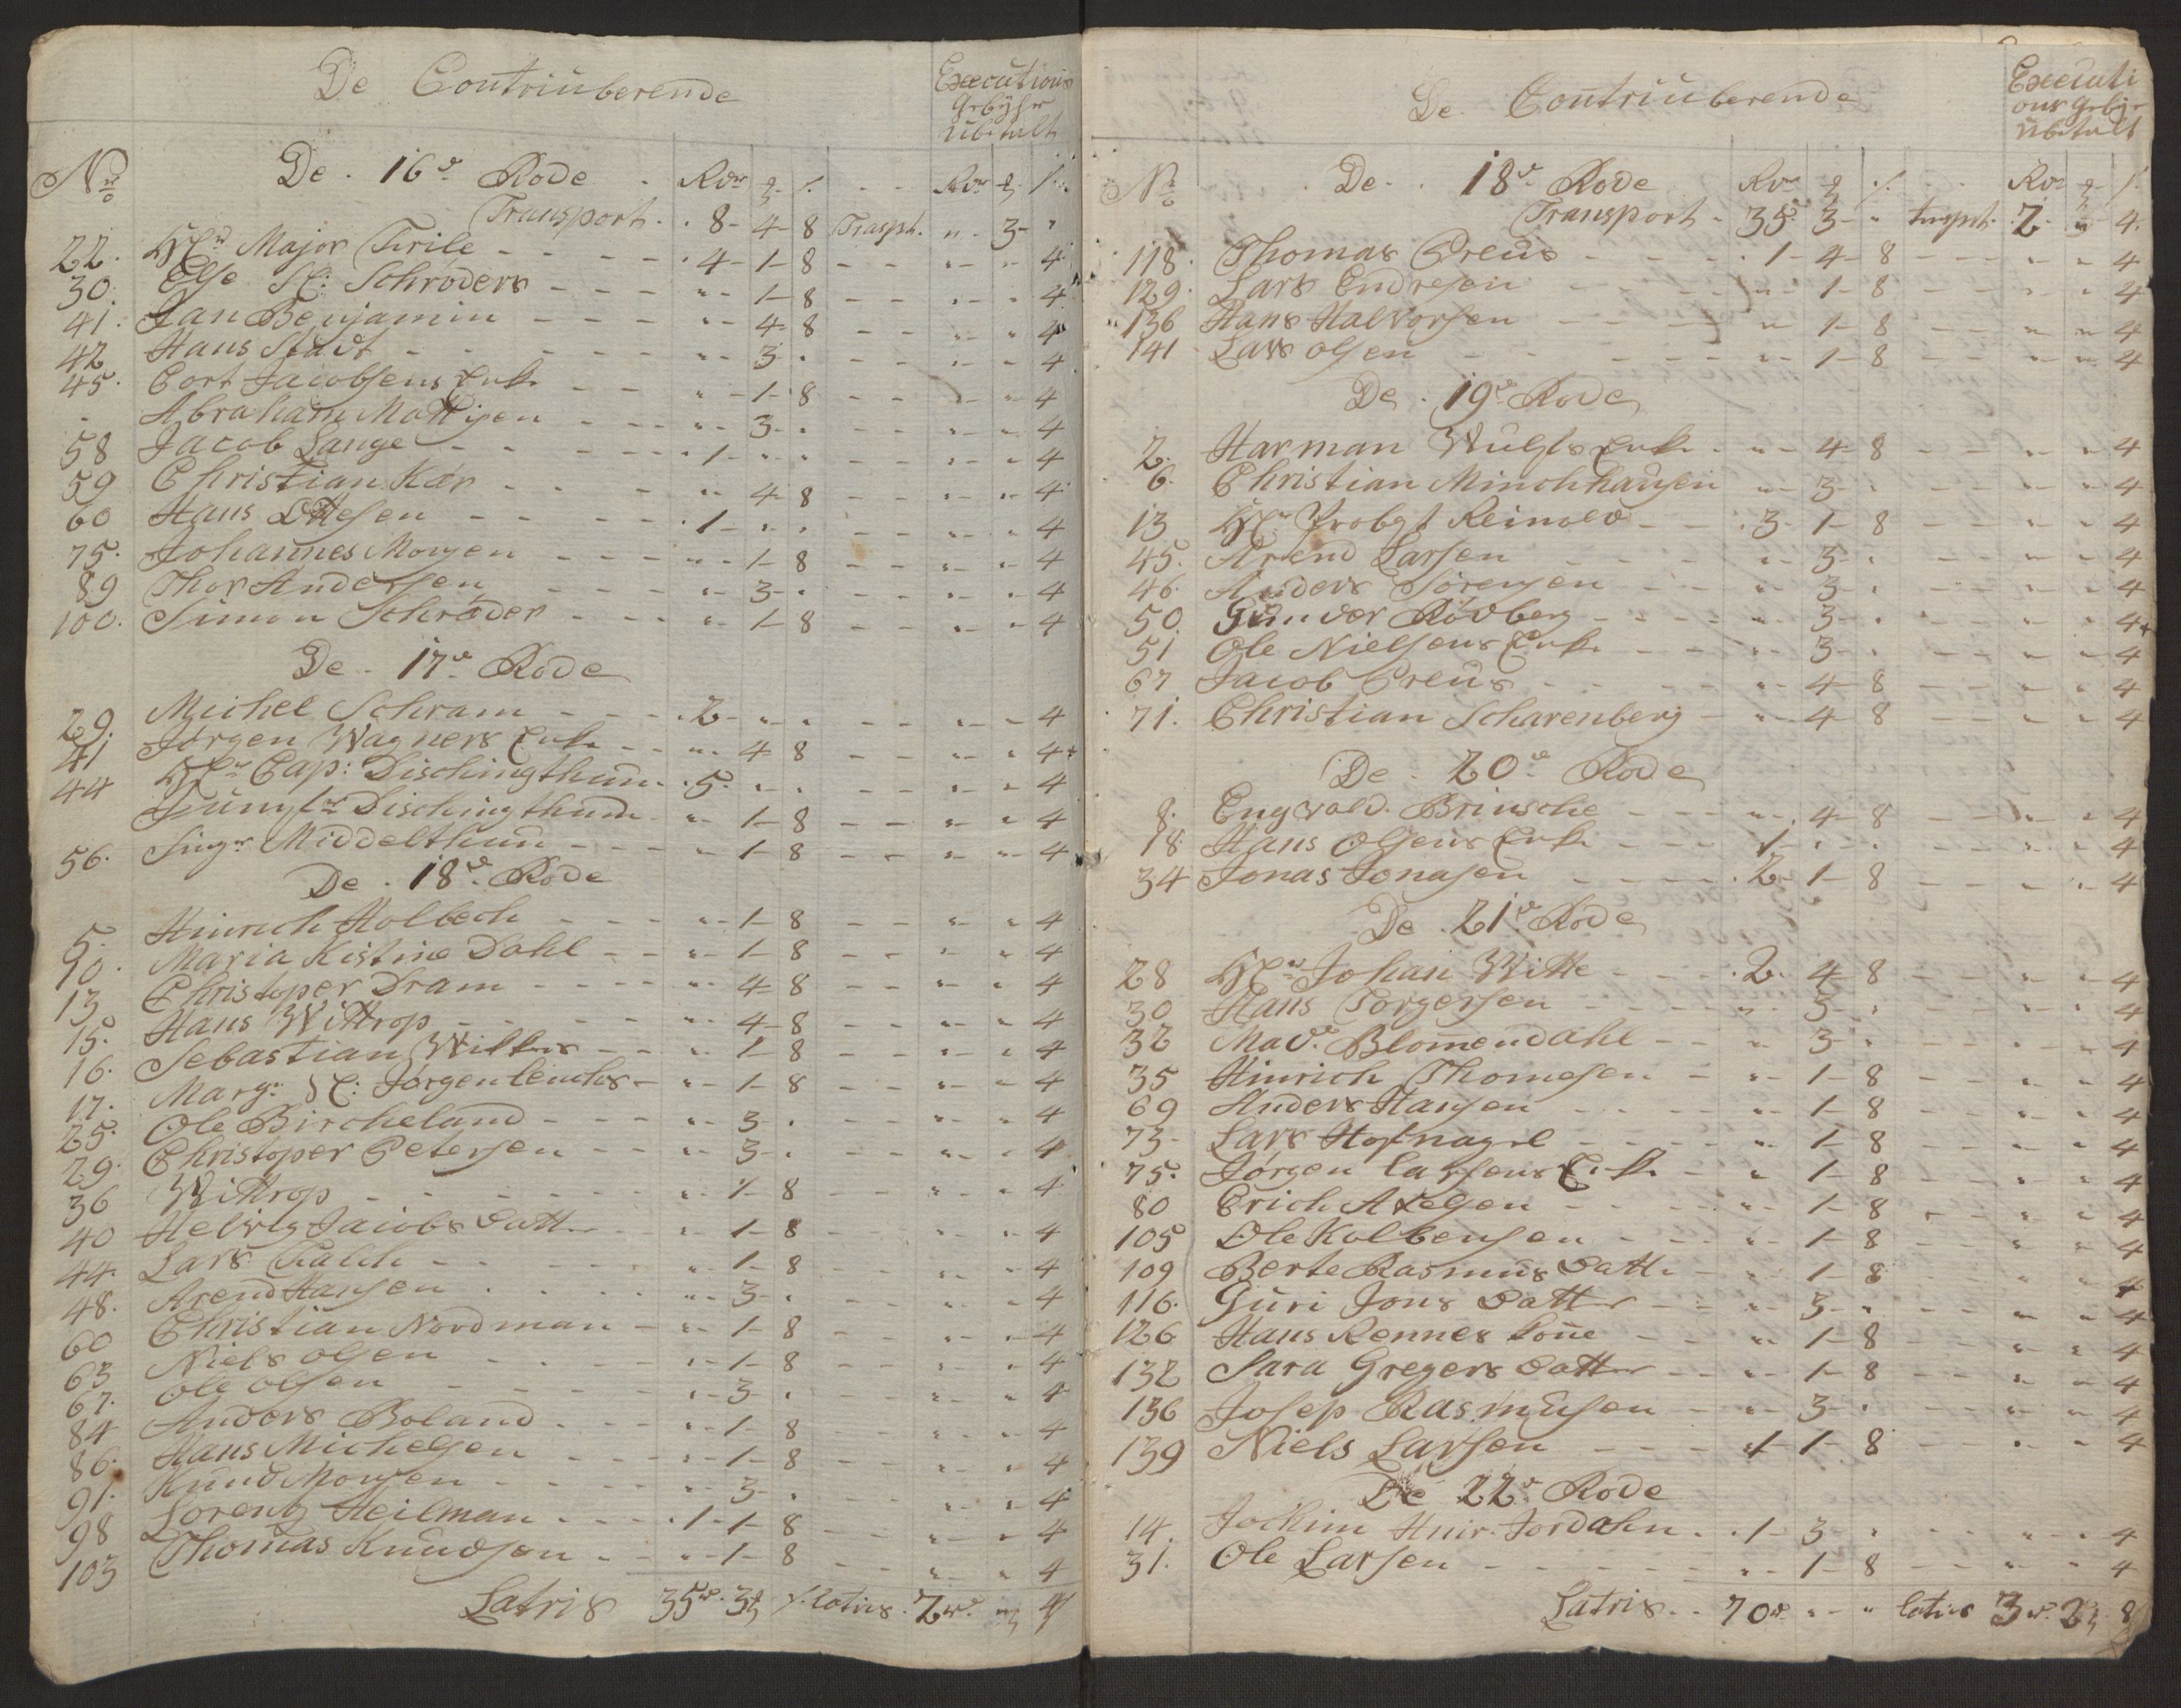 De Contriuberende
Executions
Gebyhr
ubetalt
No De 16de Rode Rdr ß Rdr
Transport 8 - 4 - 8 Trasprt. " 3 - "
22. Hr Major Tirile - 4 - 1 - 8 - - " - " 4
30. Else Sl: Schröders - " 1 - 8 - - " - " 4
41. Jan Benjamin - " 4 - 8 - - " - " 4
42 Hans Stadt - " 3 - " - - " - " 4
45. Cort Jacobsens Enke - " 1 - 8 - - " - " 4
- Abraham Mattisen - " 3 - " - - " - " 4
58 Jacob Lange - 1 - " - " - - " - " 4
59 Christian Kær - " 4 - 8 - - " - " 4
60 Hans Ottesen - 1 - " - " - - " - " 4
75. Johannes Monsen - " 1 - 8 - - " - " 4
89 Thor Andersen - " 3 - " - - " - " 4
100. Simon Schrøder - " 1 - 8 - - " - " 4
De 17de Rode
29. Michel Schram - 2 - " - " - - " - " 4
41 Jørgen Wagners Enke - " 4 - 8 - - " - " 4
44 Hr Cap: Dischingthun 5 - " - " - - " - " 4
Jumfr Dischingthun - " 1 - 8 - - " - " 4
56. Singr Middelthun - " 1 - 8 - - " - " 4
De 18de Rode
5. Hinrich Holbech - " 1 - 8 - - " - " 4
10. Maria Kistine Dahl - " 1 - 8 - - " - " 4
13 Christoper Dram - " 4 - 8 - - " - " 4
15. Hans Wittrop - " 4 - 8 - - " - " 4
16. Sebastian Wilkens - " 1 - 8 - - " - " 4
17. Margr Sl: Jørgen lenches - " 1 - 8 - - " - " 4
25. Ole Bircheland - " 3 - " - - " - " 4
29. Christoper Petersen - " 3 - " - - " - " 4
36 Wittrop - " 1 - 8 - - " - " 4
40 Helvig Jacobs Datt - " 1 - 8 - - " - " 4
44. Lars Falch - " 1 - 8 - - " - " 4
48. Arend Hansen - " 3 - " - - " - " 4
60 Christian Nordman - " 1 - 8 - - " - " 4
63 Niels Olsen - " 1 - 8 - - " - " 4
67. Ole Olsen - " 3 - " - - " - " 4
84 Anders Boland - " 1 - 8 - - " - " 4
86. Hans Michelsen - " 1 - 8 - - " - " 4
91. Knud Monsen - " 3 - " - - " - " 4
98 Lorentz Heilman - 1 - 1 - 8 - - " - " 4
103 Thomas Knudsen - " 1 - 8 - - " - " 4
Latris 35 r. 3 ß latris 2 r. " 4
De Contriuberende
Executi
ons gebyr
ubetalt
No De 18de Rode Rdr ß Rdr ß
Transport - 35 3 - " trasprt. 2 - " 4
118. Thomas Preus - 1 - 4 - 8 - - " - " 4
129. Lars Endresen - " 1 - 8 - - " - " 4
136 Hans Halvorsen - " 1 - 8 - - " - " 4
141 Lars Olsen - " 1 - 8 - - " - " 4
De 19de Rode
2. Harman Wulfs Enke - " 4 - 8 - - " - " 4
6. Christian Minchhausen " 3 - " - - " - " 4
13 Hr Probst Reinold - 3 - 1 - 8 - - " - " 4
45. Arend Larsen - " 3 - " - - " - " 4
46. Anders Sørensen - " 3 - " - - " - " 4
50. Gunder Rødberg - " 3 - " - - " - " 4
51 Ole Nielsens Enke - " 3 - " - - " - " 4
67 Jacob Preus - " 4 - 8 - - " - " 4
71. Christian Scharenberg - " 4 - 8 - - " - " 4
De 20de Rode
8. Engvold Brinsche - " 4 - 8 - - " - " 4
18. Hans Olsens Enke - 1 - " - " - - " - " 4
34 Jonas Jonasen - 2 - 1 - 8 - - " - " 4
De 21de Rode
28 Hr Johan Witte - 2. 4 - 8 - - " - " 4
30 Hans Torgersen - " 3 - " - - " - " 4
32 Made Blomendahl - " 3 - " - - " - " 4
35 Hinrich Thomesen - " 1 - 8 - - " - " 4
69 Anders Hansen - " 1 - 8 - - " - " 4
73 - Lars Hofnagel - " 1 - 8 - - " - " 4
75. Jørgen Larsens Enke - " 1 - 8 - - " - " 4
80 Erich Axelsen - " 1 - 8 - - " - " 4
105 Ole Kolbensen - " 1 - 8 - - " - " 4
109 Berte Rasmus Datt - " 1 - 8 - - " - " 4
116. Guri Jons Datter - " 3 - " - - " - " 4
126 Hans Rennes Kone - " 1 - 8 - - " - " 4
132 Sara Gregers Datter - " 1 - 8 - - " - " 4
136 Josep Rasmusen - " 3 - " - - " - " 4
139 Niels Larsen - 1 1 - 8 - - " - " 4
De 22de Rode
14. Jochim Hinr. Jordahn - 1 - 3 - " - - " - " 4
31. Ole Larsen - " 1 - 8 - - " - " 4
Latris - 70 r. " - " latris 3 r. 2 ß 8